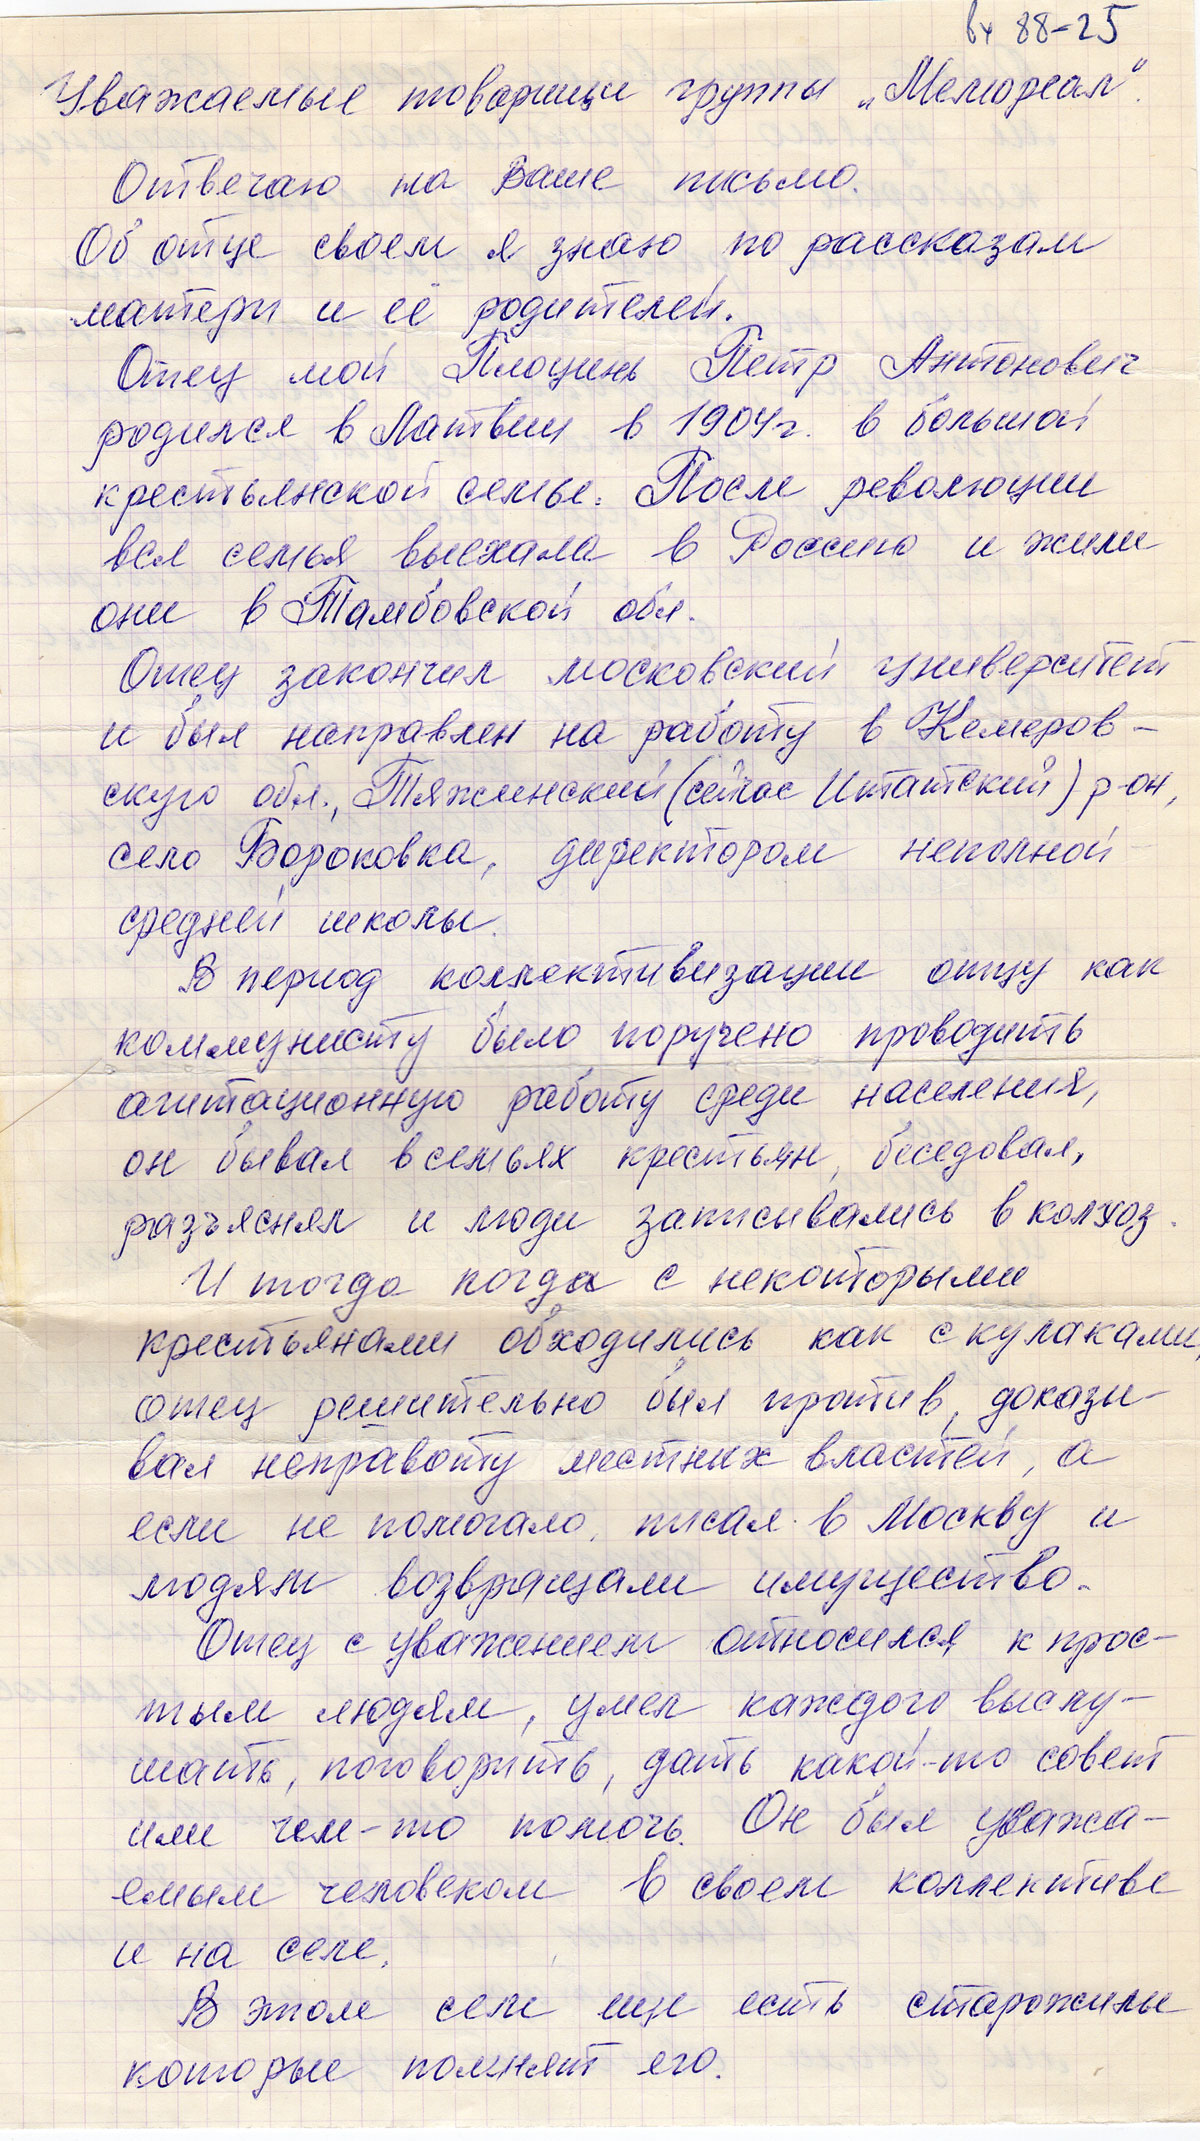 вх 88-25
Уважаемые товарищи группы „Мемореал".
Отвечаю на Ваше письмо.
Об отце своем я знаю по рассказам
матери и её родителей.
Отец мой Плоцинь Петр Антонович
родился в Латвии в 1904г. в большой
крестьянской семье. После революции
вся семья выехала в Россию и жили
они в Тамбовской обл.
Отец закончил московский университет
и был направлен на работу в Кемеров-
скую обл., Тяжинский (сейчас Итатский) р-он,
село Бороковка, директором неполной
средней школы.
В период коллективизации отцу как
коммунисту было поручено проводить
агитационную работу среди населения,
он бывал в семьях крестьян, беседовал,
разъяснял и люди записывались в колхоз.
И тогда когда с некоторыми
крестьянами обходились как с кулаками,
отец решительно был против, доказы-
вал неправоту местных властей, а
если не помогало, писал в Москву и
людям возвращали имущество.
Отец с уважением относился к прос-
тым людям, умел каждого выслу-
шать, поговорить, дать какой-то совет
или чем-то помочь. Он был уважа-
емым человеком в своем коллективе
и на селе.
В этом селе еще есть старожилы
которые помнят его.